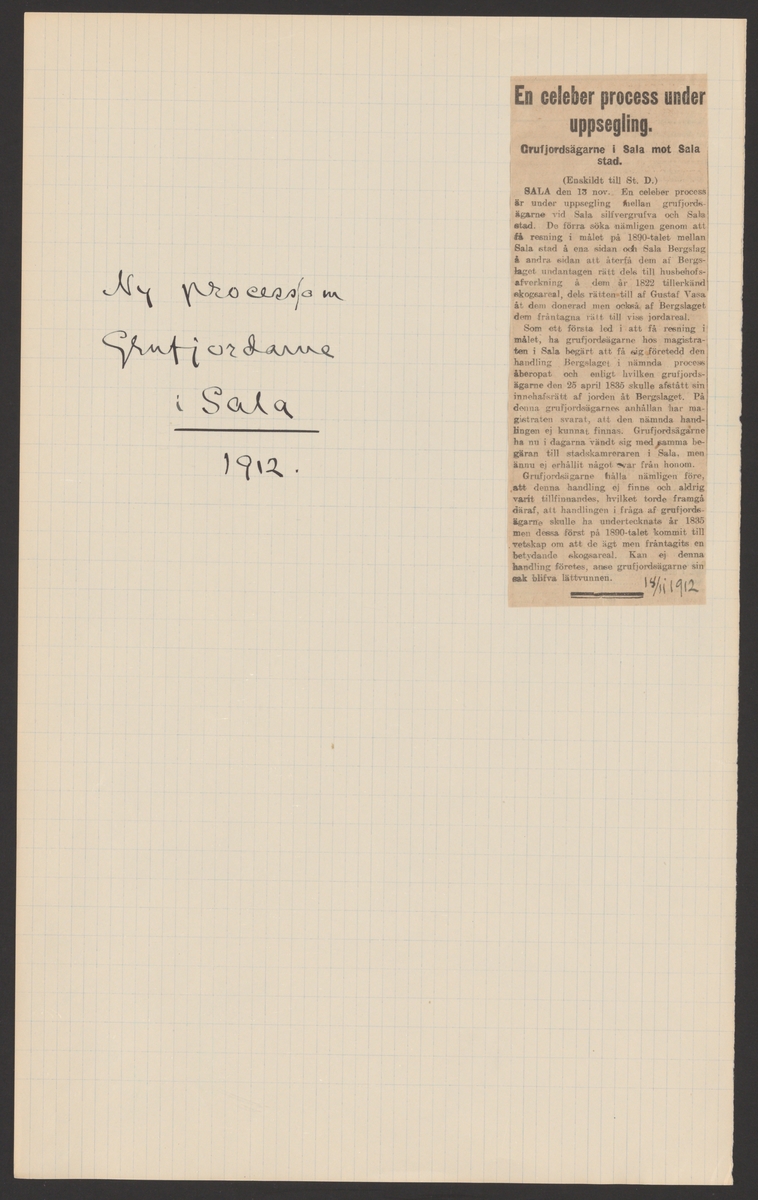 Ny process om
Grufjordarne
i Sala
1912.
En celeber process under
uppsegling.
Grufjordsägarne i Sala mot Sala
stad.
(Enskildt till St. D.)
SALA den 13 nov. En celeber process
är under uppsegling mellan grufjords-
ägarne vid Sala silfvergrufva och Sala
stad. De förra söka nämligen genom att
få resning i målet på 1890-talet mellan
Sala stad å ena sidan och Sala Bergslag
å andra sidan att återfå dem af Bergs-
laget undantagen rätt dels till husbehofs-
afverkning å dem år 1822 tillerkänd
skogsareal, dels rätten till af Gustaf Vasa
åt dem donerad men också af Bergslaget
dem fråntagna rätt till viss jordareal.
Som ett första led i att få resning i
målet, ha grufjordsägarne hos magistra-
ten i Sala begärt att få sig företedd den
handling Bergslaget i nämnda process
åberopat och enligt hvilken grufjords-
ägarne den 25 april 1835 skulle afstått sin
innehafsrätt af jorden åt Bergslaget. På
denna grufjordsägarnes anhållan har ma-
gistraten svarat, att den nämnda hand-
lingen ej kunnat finnas. Grufjordsägarne
ha nu i dagarna vändt sig med samma be-
gäran till stadskamreraren i Sala, men
ännu ej erhållit något svar från honom.
Grufjordsägarne hålla nämligen före,
att denna handling ej finns och aldrig
varit tillfinnandes, hvilket torde framgå
däraf, att handlingen i fråga af grufjords-
ägarne skulle ha undertecknats år 1835
men dessa först på 1890-talet kommit till
vetskap om att de ägt men fråntagits en
betydande skogsareal. Kan ej denna
handling företes, anse grufjordsägarne sin
sak blifva lättvunnen.
18/11 1912